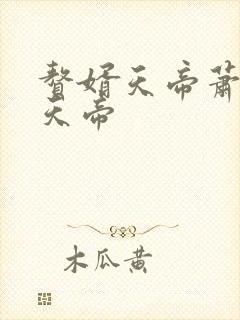 赘婿天帝萧
天帝
木瓜黄